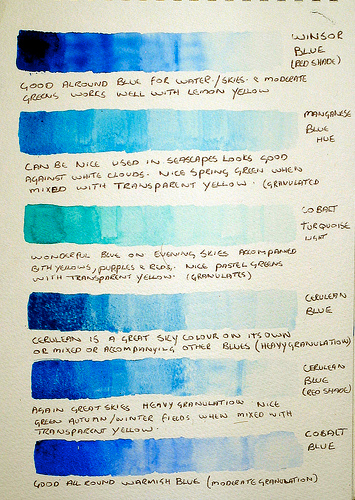 WINSOR
BLUE
(RED SHADE)
GOOD ALROUND BLUE FOR WATER./SKIES. & MODERATE
GREENS WORKS WELL WITH LEMON YELLOW
MANGANESE
BLUE
HUE
CAN BE NICE USED IN SEASCAPES LOOKS GOOD
AGAINST WHITE CLOUDS. NICE SPRING GREEN WHEN
MIXED WITH TRANSPARENT YELLOW. (GRANULATED
COBALT
TURQUOISE
LIGHT
WONDERFUL BLUE ON EVENING SKIES ACCOMPANIED
BITH YELLOWS, PURPLES & REDS. NICE PASTEL GREENS
WITH TRANSPARENT YELLOW. (GRANULATES)
CERULEAN
BLUE
CERULEAN IS A GREAT SKY COLOUR ON ITS OWN
OR MIXED OR ACCOMPANYING OTHER BLUES (HEAVY GRANULATION)
CERULEAN
BLUE
(RED SHADE)
AGAIN GREAT SKIES HEAVY GRANULATION NICE
GREEN AUTUMN/WINTER FIELDS WHEN MIXED WITH
TRANSPARENT YELLOW.
COBALT
BLUE
GOOD ALL ROUND WARMISH BLUE (MODERATE GRANULATION)